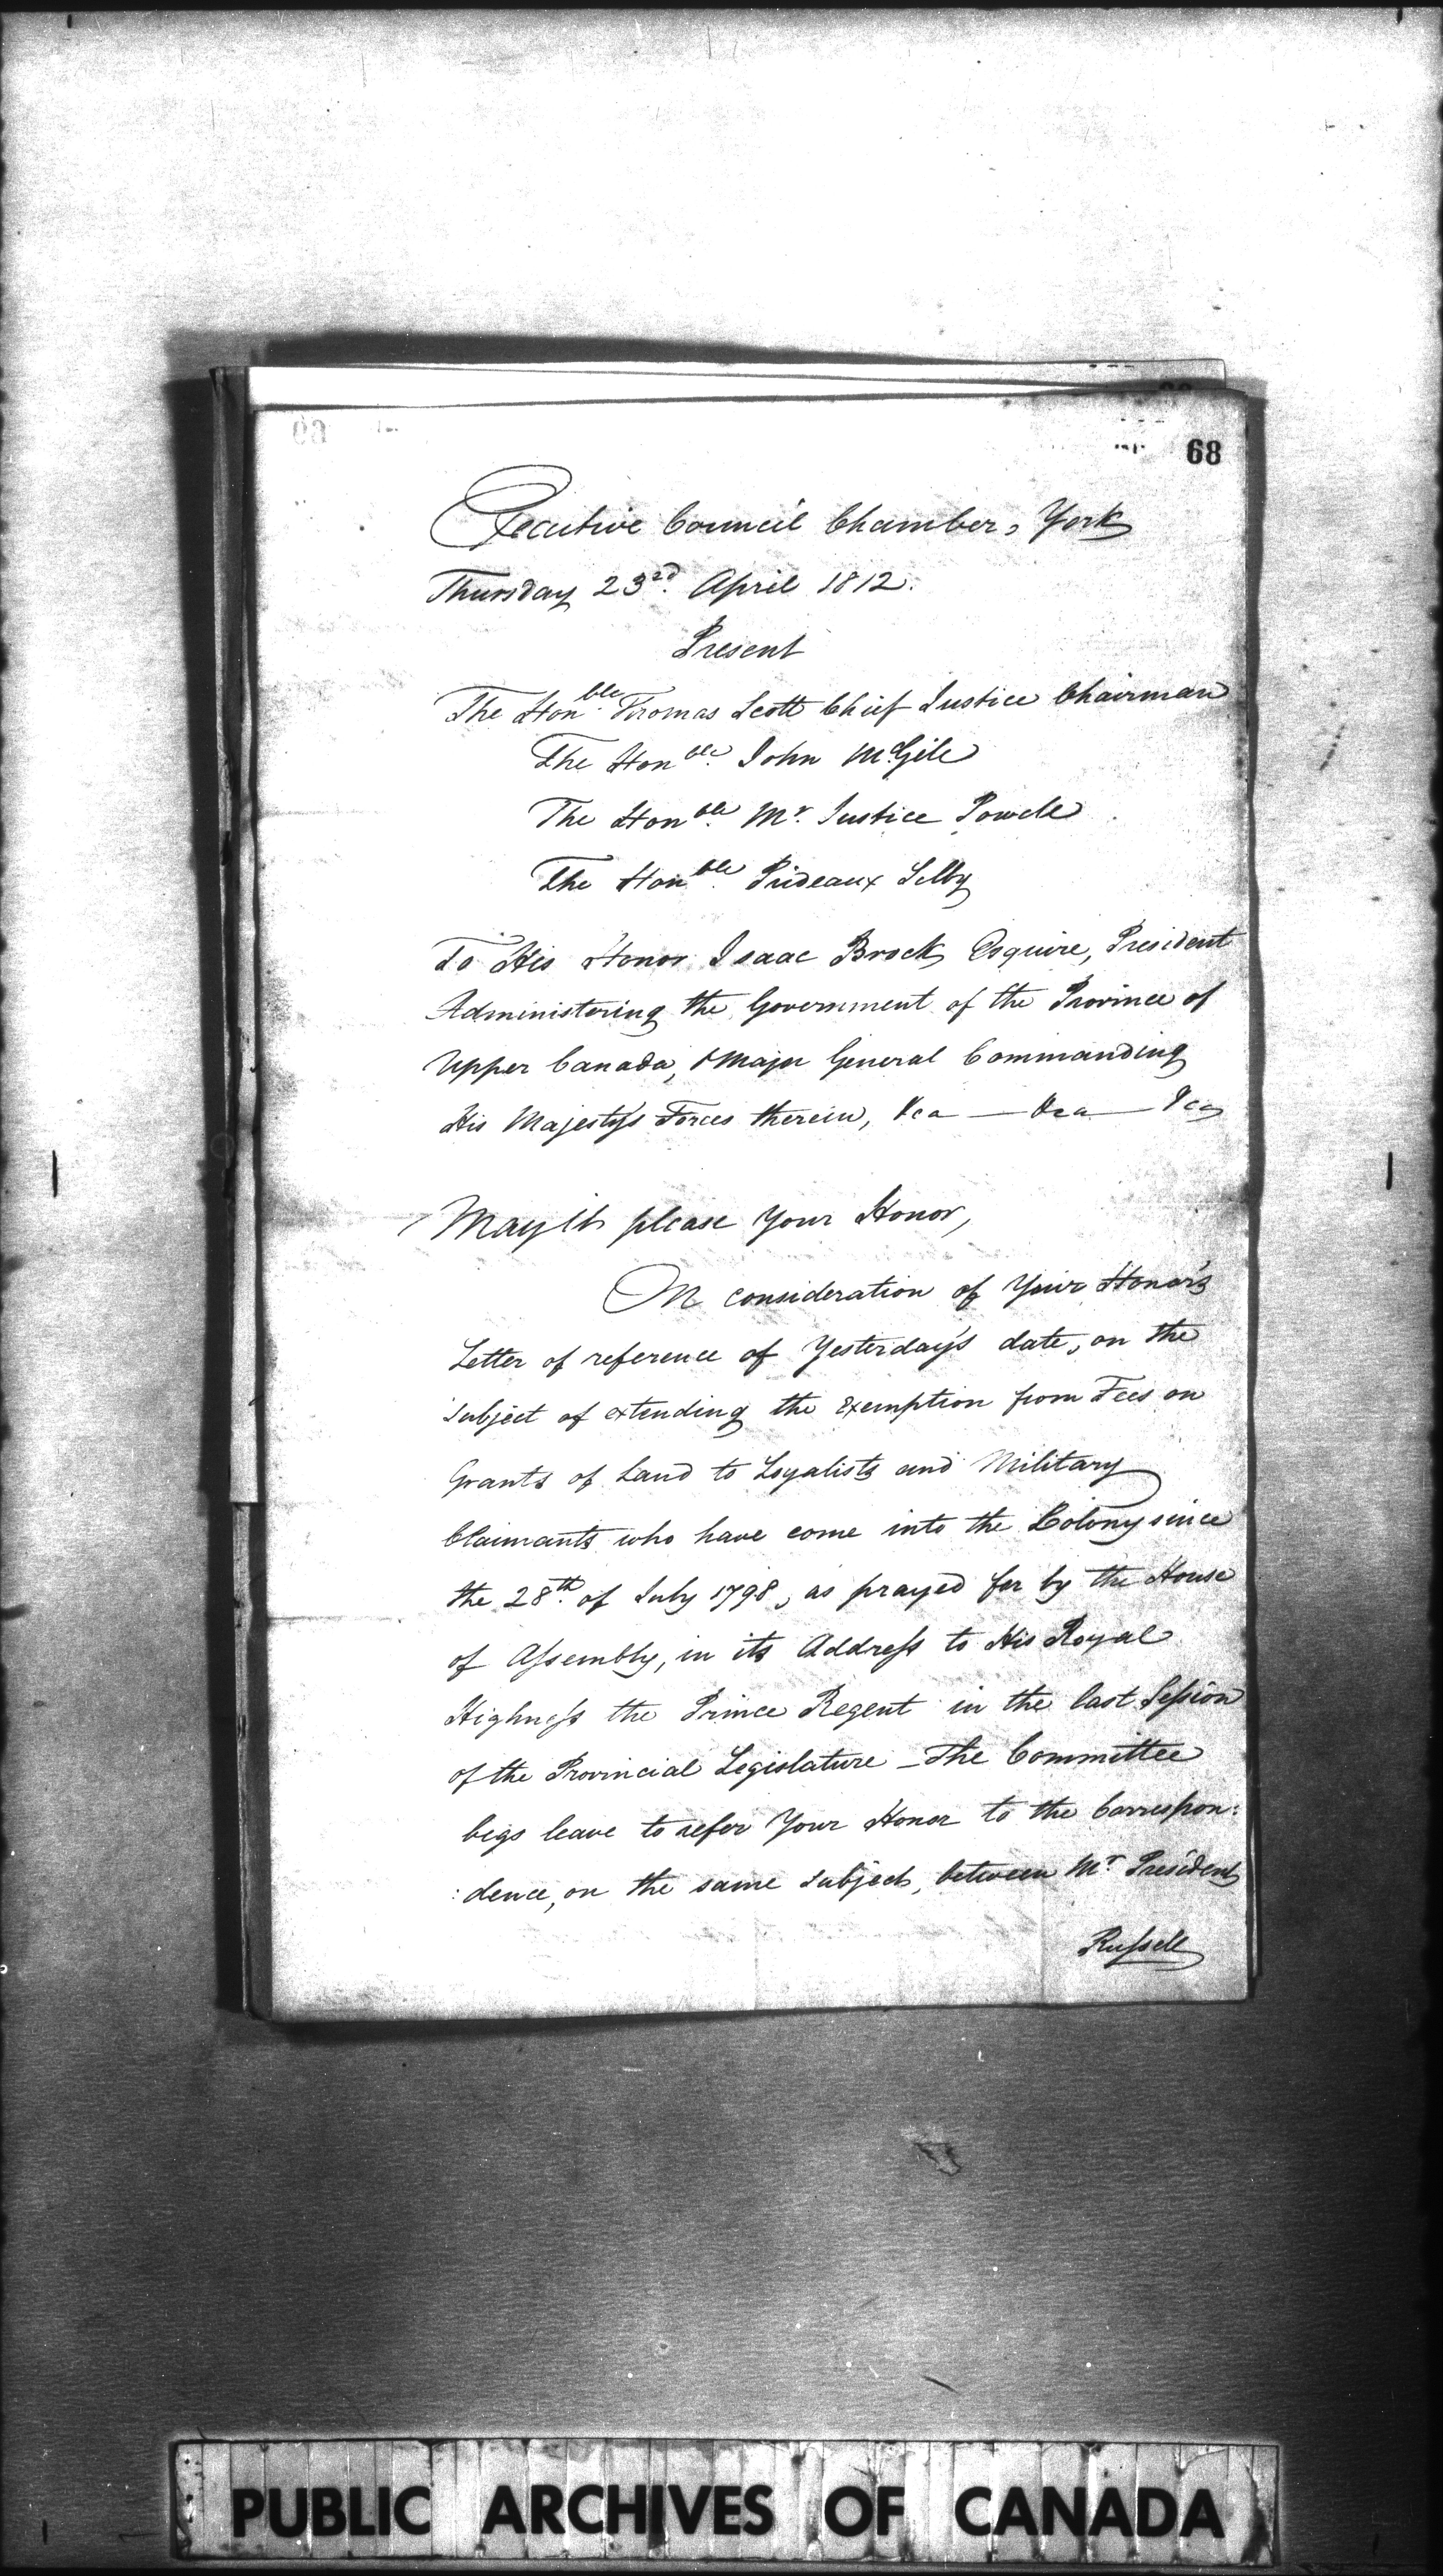 68
Executive Council Chamber, York
Thursday 23rd. April 1812.
Present
The Honble. Thomas Scott Chief Justice Chairman
The Honble. John McGill
The Honble. Mr. Justice Powell
The Honble. Prideaux Selby
To His Honor Isaac Brock Esquire, President
Administering the Government of the Province of
Upper Canada, & Major General Commanding
His Majesty's Forces therein, &ca — &ca — &ca
May it please Your Honor,
On consideration of Your Honor's
Letter of reference of Yesterday's date, on the
subject of extending the Exemption from Fees on
Grants of Land to Loyalists and Military
Claimants who have come into the Colony since
the 28th. of July 1798, as prayed for by the House
of Assembly, in its Address to His Royal
Highness the Prince Regent in the last Session
of the Provincial Legislature – The Committee
begs leave to refer Your Honor to the Correspon:
:dence, on the same subject, between Mr. President
Russell
PUBLIC ARCHIVES OF CANADA